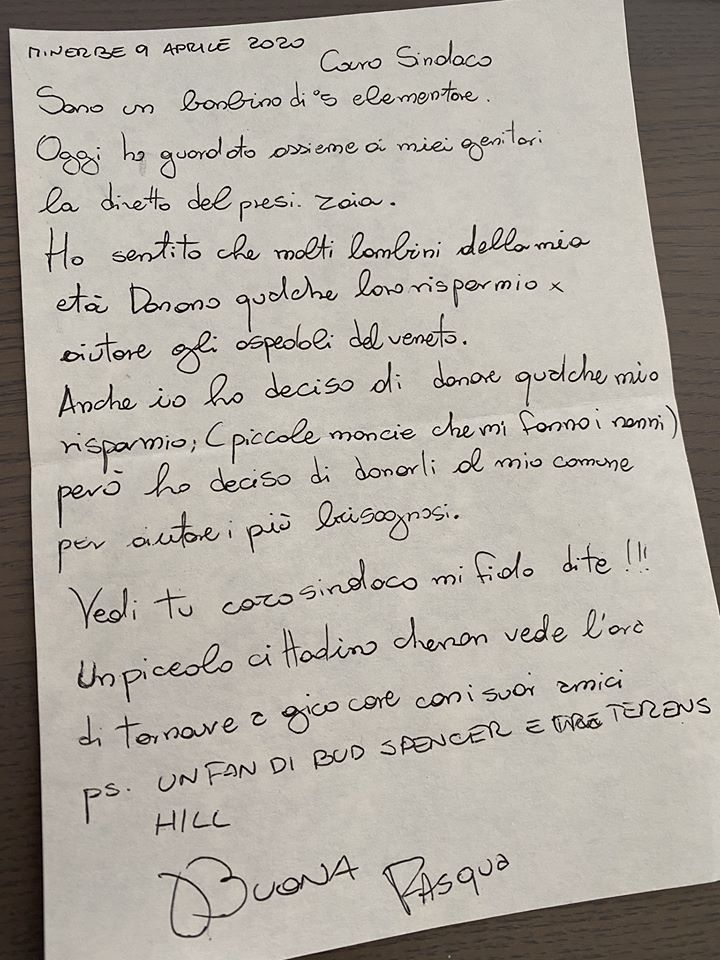 MINERBE 9 APRILE 2020
Caro Sindaco
Sono un banbino di °5 elementare.
Oggi ho guardato assieme ai miei genitori
la diretta del presi. zaia.
Ho sentito che molti bambini della mia
età Donano qualche loro risparmio x
aiutare gli ospedali del veneto.
Anche io ho deciso di donare qualche mio
risparmio; (piccole mancie che mi fanno i nonni)
però ho deciso di donarli al mio comune
per aiutare i più bisognosi.
Vedi tu caro sindaco mi fido di te !!!
Un piccolo cittadino che non vede l'ora
di tornare a giocare con i suoi amici
ps. UN FAN DI BUD SPENCER E TERENS
HILL
BUONA PASqua